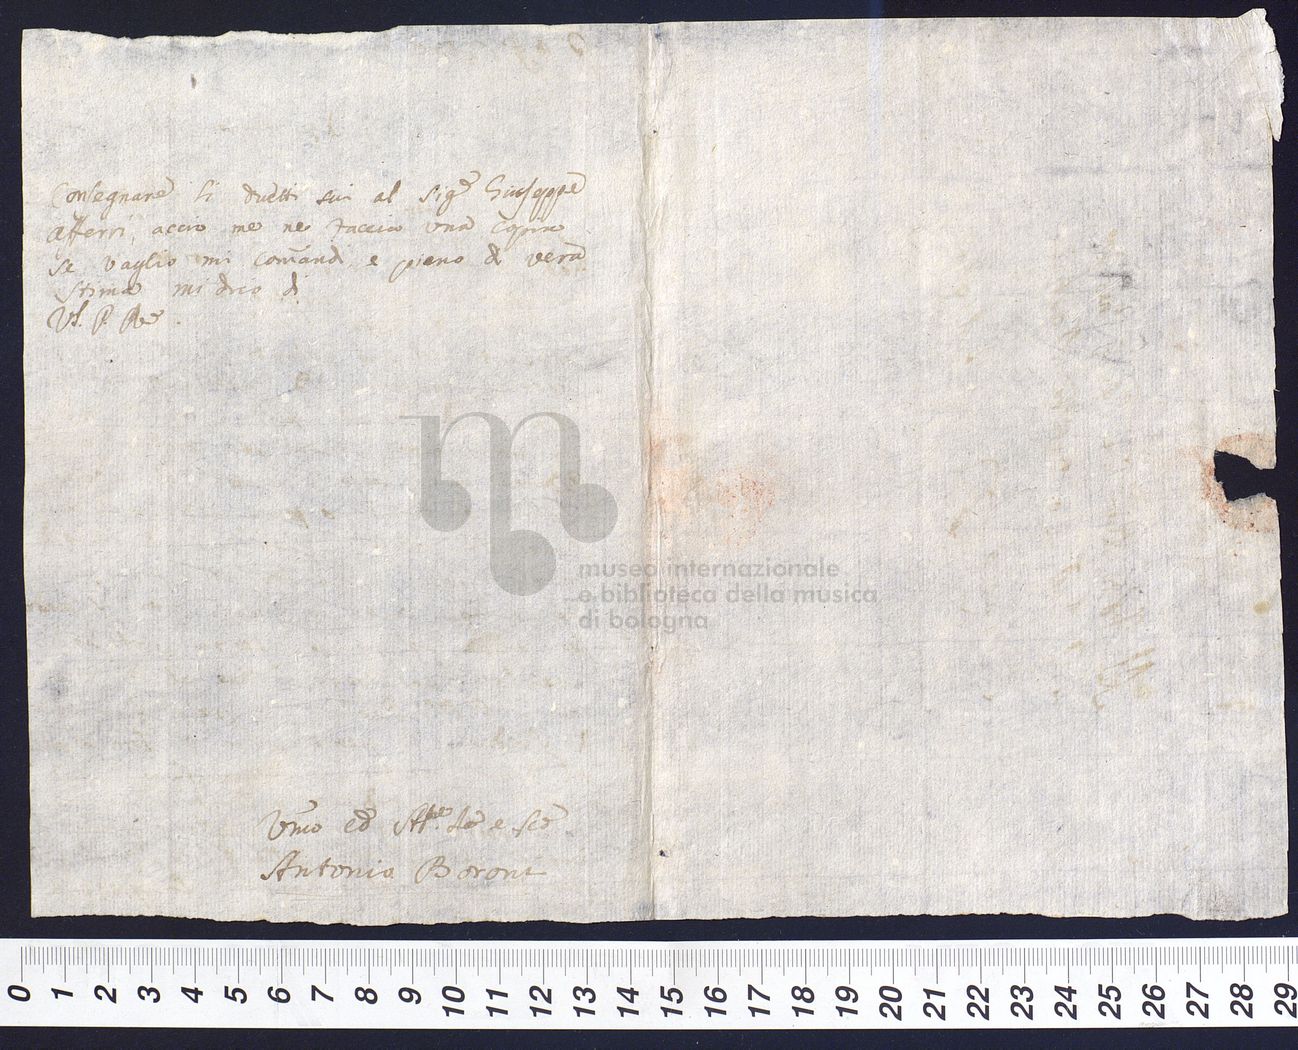 Consegnare li duetti sui al Sigre Giuseppe
Afferri, acciò me ne faccia una copia
se vaglio mi comandi e pieno di vera
stima mi dico di
VS. P. Rda
Umo ed
Antonio Boroni
museo internazionale
e biblioteca della musica
di bologna
0 1 2 3 4 5 6 7 8 9 10 11 12 13 14 15 16 17 18 19 20 21 22 23 24 25 26 27 28 29